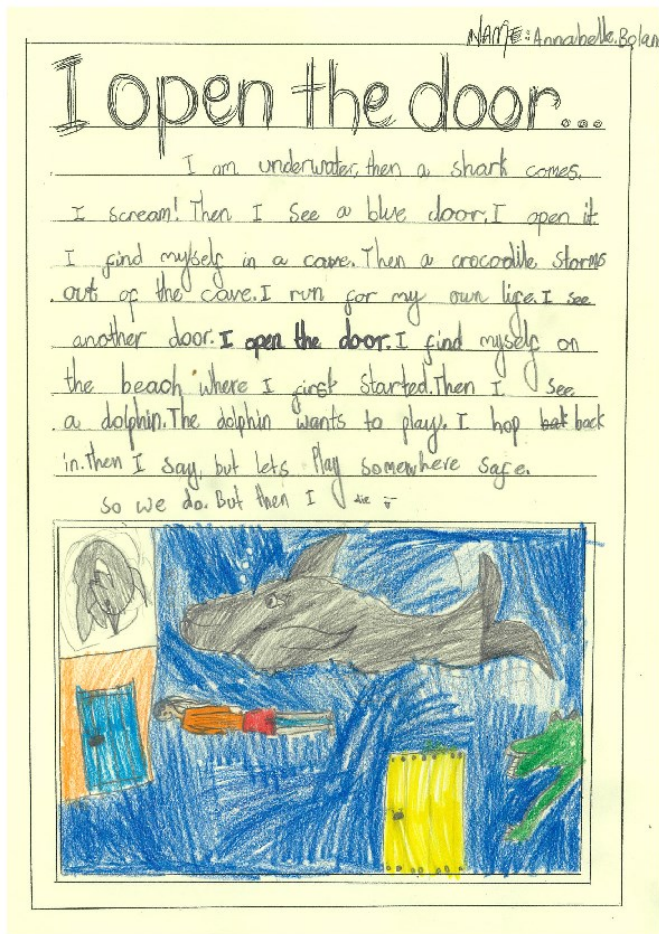 NAME: Annabelle.Bolan
I open the door...
I am underwater, then a shark comes.
I scream! Then I see a blue door. I open it
I find myself in a cave. Then a crocodile storms
out of the cave. I run for my own life. I see
another door. I open the door. I find myself on
the beach where I first started. Then I see
a dolphin. The dolphin wants to play. I hop bak back
in. Then I say, but lets play somewhere safe.
so we do. But then I die :-